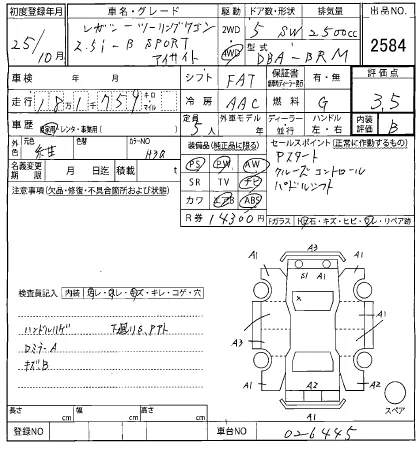 初度登録年月
車名・グレード
駆動
ドア数・形状
排気量
出品NO.
25/10月
レガシーツーリングワゴン
2.5i-B SPORT
アイサイト
2WD
4WD
5 SW
2500cc
型式
DBA-BRM
2584
車検
年
月
日
シフト
FAT
保証書
有・無
評価点
走行
18万1千759
キロ
マイル
冷房
AAC
燃料
G
3.5
車歴
自家用・レンタ・事業用( )
定員
5人
外車モデル
年
ディーラー
並行
ハンドル
左・右
内装評価
B
外色
元色
色替
カラーNO
H3Q
名義変更期限
月
日迄
積載
t
装備品(純正品に限る)
PS PW AW
SR TV ナビ
カワ エアB ABS
R券 14300円
セールスポイント(正常に動作するもの)
Pスタート
クルーズコントロール
パドルシフト
注意事項(欠品・修復・不具合箇所および状態)
Fガラス
石・キズ・ヒビ・ワレ・リペア跡
検査員記入
内装
コゲ・穴
ハンドルスレ
下廻りS,Pアト
ロミラーA
キズB
A3
S1
A1
A1
A1
A1
A3
A1
A1
A1
A2
A1
スペア
長さ
cm
幅
cm
高さ
cm
登録NO
車台NO
02-6445